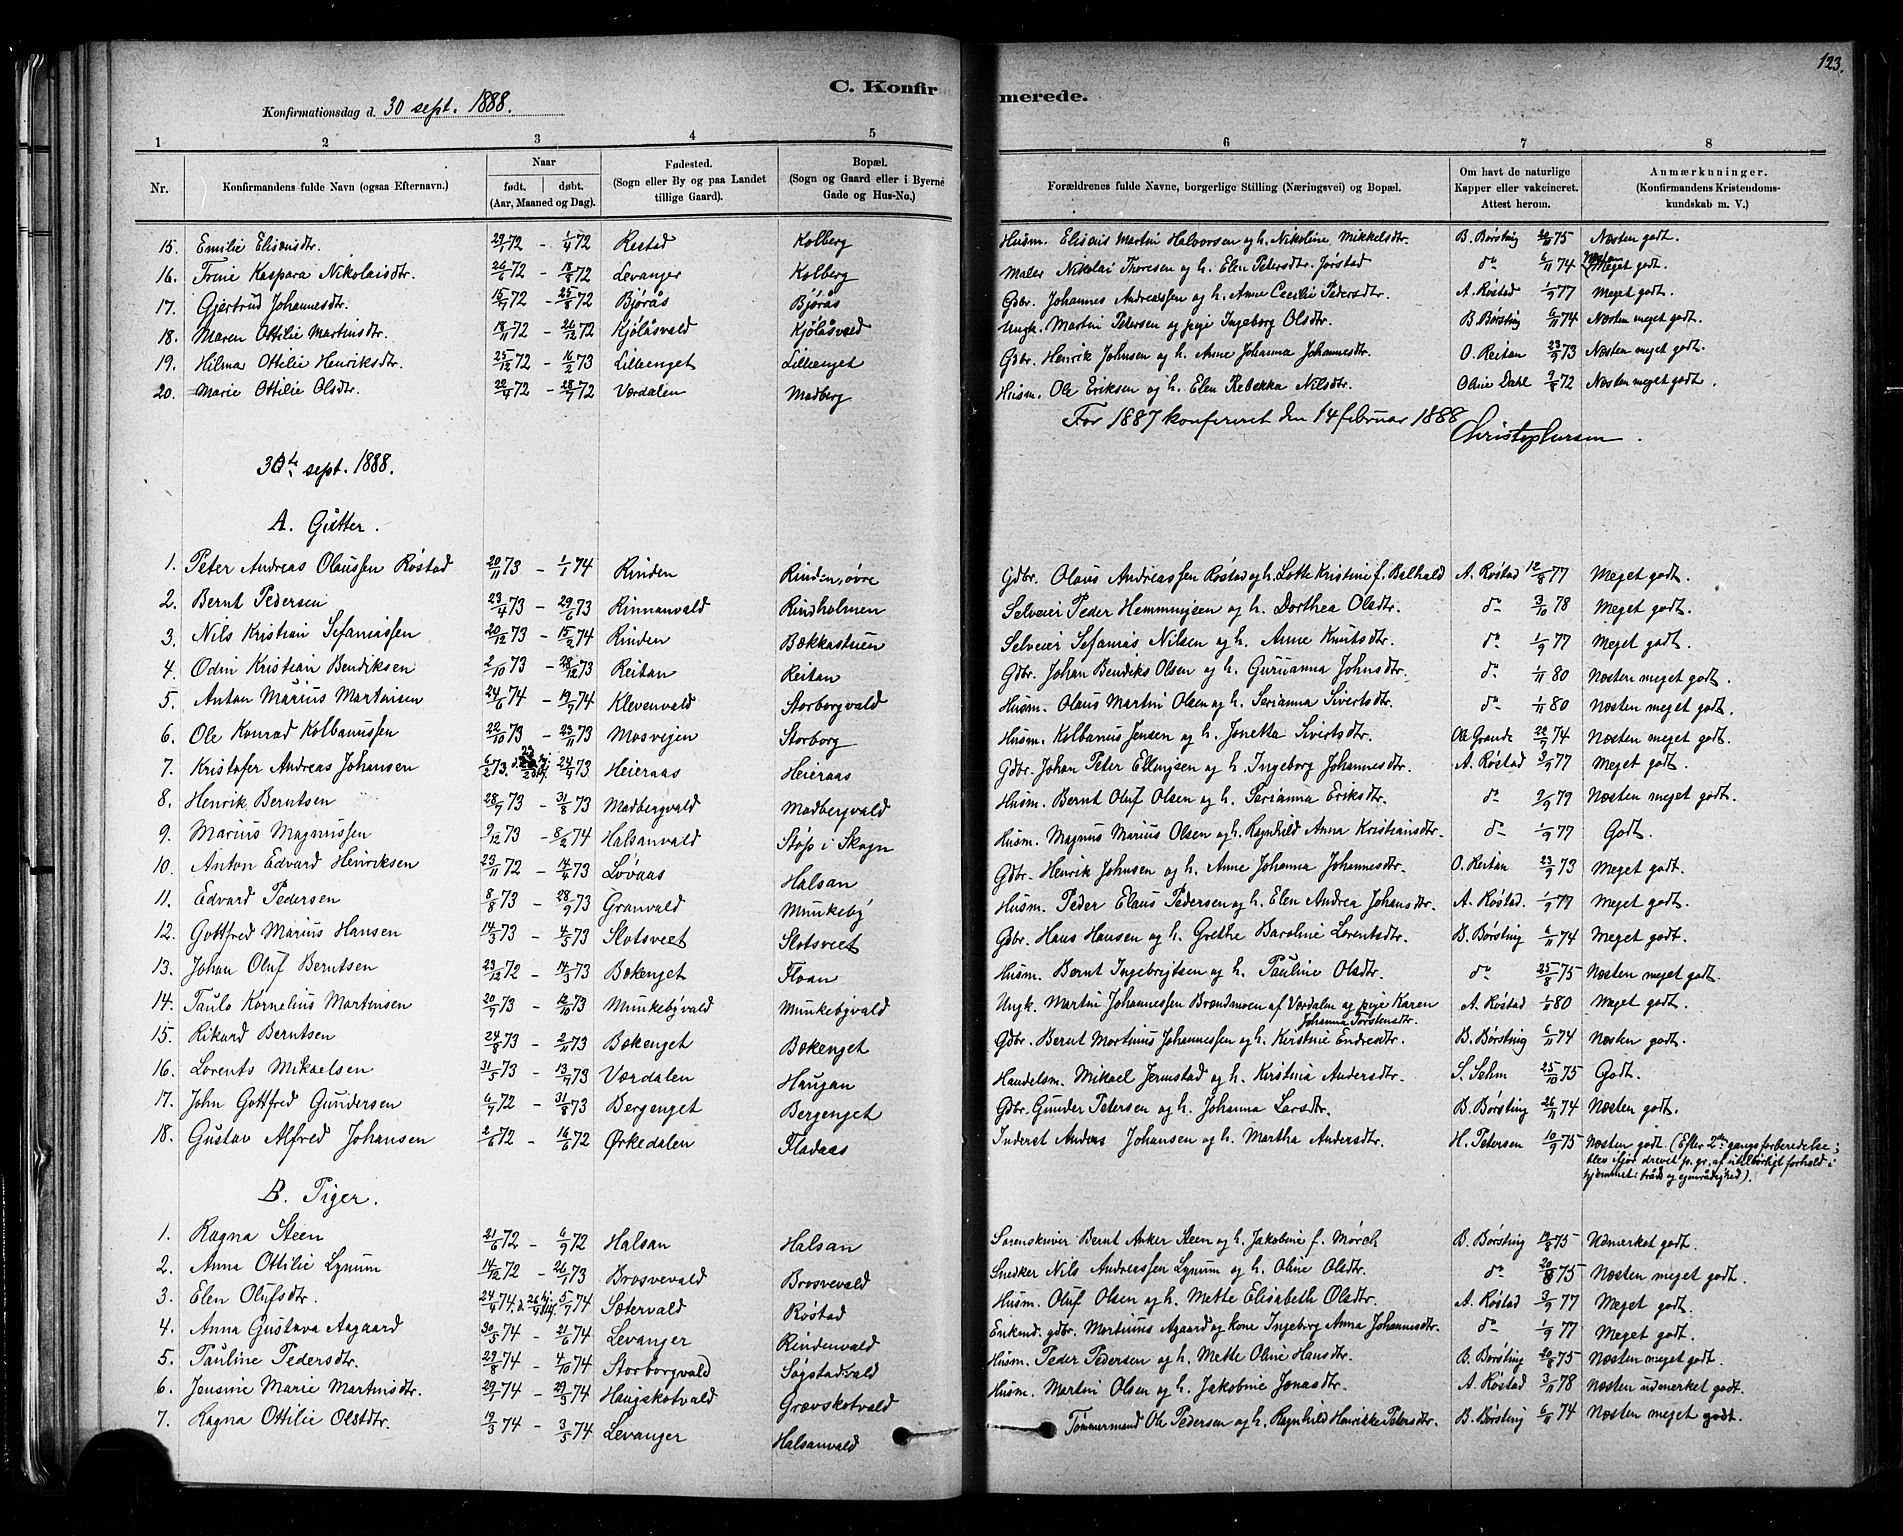 123.
C. Konfirmerede.
Konfirmationsdag d. 30 sept. 1888.
1 2 3 4 5 6 7 8
Nr. Konfirmandens fulde Navn (ogsaa Efternavn.) Naar født. døbt. (Aar, Maaned og Dag). Fødested. (Sogn eller By og paa Landet tillige Gaard). Bopæl. (Sogn og Gaard eller i Byerne Gade og Hus-No.) Forældrenes fulde Navne, borgerlige Stilling (Næringsvei) og Bopæl. Om havt de naturlige Kapper eller vakcineret. Attest herom. Anmærkninger. (Konfirmandens Kristendomskundskab m. V.)
15. Emilie Eliseusdtr. 29/1 72 - 1/4 72 Restad Kolberg Husm. Eliseus Martin Halvorsen og h. Nikoline Mikkelsdtr. B. Børsting 75 Næsten godt.
16. Trine Kaspara Nikolaisdtr. 26/6 72 - 18/8 72 Levanger Kolberg Maler Nikolai Thoresen og h. Elen Petersdtr. Jørstad do 6/11 74 Næsten Meget godt.
17. Gjertrud Johannesdtr. 15/7 72 - 25/8 72 Bjørås Bjørås Gdbr. Johannes Andreassen og h. Anne Cecilie Pedersdtr. A. Røstad 1/9 77 Meget godt.
18. Maren Ottilie Martinsdtr. 18/11 72 - 26/12 72 Kjølåsvald Kjølåsvald Ungk. Martin Petersen og pige Ingeborg Olsdtr. B. Børsting 6/11 74 Næsten meget godt.
19. Hilma Ottilie Henriksdtr. 25/12 72 - 16/2 73 Lillænget Lillænget Gdbr. Henrik Johnsen og h. Anne Johanna Johannesdtr. O. Reitan 23/9 73 Næsten meget godt.
20. Marie Ottilie Olsdtr. 22/4 72 - 28/7 72 Værdalen Madberg Husm. Ole Eriksen og h. Elen Rebekka Nilsdtr. Oline Dahl 9/8 72 Næsten meget godt.
For 1887 konfereret den 14 februar 1888
Christophersen.
30te sept. 1888.
A. Gutter.
1. Peter Andreas Olaussen Røstad 20/11 73 - 1/1 74 Rinden Rinden, øvre Gdbr. Olaus Andreassen Røstad og h. Lotte Kristine f. Balhald A. Røstad 12/9 77 Meget godt.
2. Bernt Pedersen 23/4 73 - 29/6 73 Rinnanvald Rindholmen Selveier Peder Hemmingsen og h. Dorthea Olsdtr. do 3/10 78 Meget godt.
3. Nils Kristian Sefaniassen 20/12 73 - 15/2 74 Rinden Bækkastuen Selveier Sefanias Nilsen og h. Anne Knutsdtr. do 1/9 77 Meget godt.
4. Odin Kristian Bendiksen 2/10 73 - 28/12 73 Reitan Reitan Gdbr. Johan Bendiks Olsen og h. Gurianna Johnsdtr. do 1/11 80 Næsten meget godt.
5. Anton Marius Martinsen 24/6 74 - 19/7 74 Klevenvald Storborgvald Husm. Olaus Martin Olsen og h. Serianna Sivertsdtr. do 1/11 80 Næsten meget godt.
6. Ole Konrad Kolbanussen 22/10 73 - 23/11 73 Mosvigen Storborg Husm. Kolbanus Jensen og h. Jonetta Sivertsdtr. Ole Grande 22/9 74 Næsten meget godt.
7. Kristofer Andreas Johansen 6/2 73. - 24/4 73 Heieraas Heieraas Gdbr. Johan Peter Ellingsen og h. Ingeborg Johannesdtr. A. Røstad 3/9 77 Meget godt.
8. Henrik Berntsen 28/7 73 - 31/8 73 Madbergvald Madbergvald Husm. Bernt Oluf Olsen og h. Serianna Eriksdtr. do 2/9 79 Næsten meget godt.
9. Marius Magnussen 9/12 73 - 8/2 74 Halsanvald Støp i Skogn Husm. Magnus Marius Olsen og h. Ragnhild Anna Kristiansdtr. do 1/9 77 Godt.
10. Anton Edvard Henriksen 23/11 72 - 14/4 73 Løvaas Halsan Gdbr. Henrik Johnsen og h. Anne Johanna Johannesdtr. O. Reitan 23/9 73 Meget godt.
11. Edvard Pedersen 8/8 73 - 28/9 73 Granvald Munkeby Husm. Peder Elaus Pedersen og h. Elen Andrea Johansdtr. A. Røstad. 1/9 77 Meget godt.
12. Gottfred Marius Hansen 14/3 73 - 4/5 73 Slotsveet Slotsveet Gdbr. Hans Hansen og h. Grethe Baroline Lorentsdtr. B. Børsting 6/11 74 Meget godt.
13. Johan Oluf Berntsen 23/12 72 - 14/3 73 Bækenget Floan Husm. Bernt Ingebrigtsen og h. Pauline Olsdtr. do 25/8 75 Næsten meget godt.
14. Paulo Kornelius Martinsen 20/7 73 - 12/10 73 Munkebyvald Munkebyvald Ungk. Martin Johannessen Brændmoen af Værdalen og pige Karen Johanna Torstensdtr. A. Røstad 1/11 80 Meget godt.
15. Rikard Berntsen 24/8 73 - 2/11 73 Bækenget Bækenget Gdbr. Bernt Martinus Johannessen og h. Kirstine Endresdtr. B. Børsting 6/11 74 Næsten godt.
16. Lorents Mikaelsen 31/5 73 - 13/7 73 Værdalen Haugan Handelsm. Mikael Jermstad og h. Kirstina Andersdtr. S. Sehm 25/10 75 Godt.
17. John Gottfred Gundersen 6/7 72 - 31/8 73 Bergenget Bergenget Gdbr. Gunder Petersen og h. Johanna Larsdtr. B. Børsting 26/11 74 Næsten godt.
18. Gustav Alfred Johansen 2/6 72 - 16/6 72 Ørkedalen Fladaas Inderst Andreas Johansen og h. Martha Andersdtr. H. Petersen 10/9 75 Næsten godt (Efter 2den gangs forberedelse; blev ifjor drevet p. gr. af utilbørligt forhold i hjemmet: tråds og egenrådighed).
B. Piger.
1. Ragna Steen 21/6 72 - 6/9 72 Halsan Halsan Sorenskriver Bernt Anker Steen og h. Jakobine f. Mørch B. Børsting 19/8 75 Udmærket godt.
2. Anna Ottilie Lynum 14/12 72 - 26/1 73 Brosvevald Brosvevald Snedker Nils Andreassen Lynum og h. Oline Olsdtr. do 20/8 75 Næsten meget godt.
3. Elen Olufsdtr. 24/4 74. - 5/7 74 Sætervald Røstad Husm. Oluf Olsen og h. Mette Elisabeth Olsdtr. A. Røstad 3/9 77 Meget godt.
4. Anna Gustava Aagaard 30/5 74 - 21/6 74 Levanger Rindenvald Enkemd. gdbr. Martinus Agaard og kone Ingeborg Anna Johannesdtr. do 1/9 77 Meget godt.
5. Pauline Pedersdtr. 29/8 74 - 4/10 74 Storborgvald Søgstadvald Husm. Peder Pedersen og h. Mette Oline Hansdtr. B. Børsting 20/8 75 Næsten meget godt.
6. Jensine Marie Martinsdtr. 29/1 74 - 29/3 74 Haugskotvald Gravskotvald Husm. Martin Olsen og h. Jakobine Jonasdtr. A. Røstad 3/11 78 Næsten udmærket godt.
7. Ragna Ottilie Olsdtr. 19/3 74 - 3/5 74 Levanger Halsanvald Tømmermand Ole Pedersen og h. Ragnhild Henrikke Petersdtr. B. Børsting 6/11 74 Næsten meget godt.